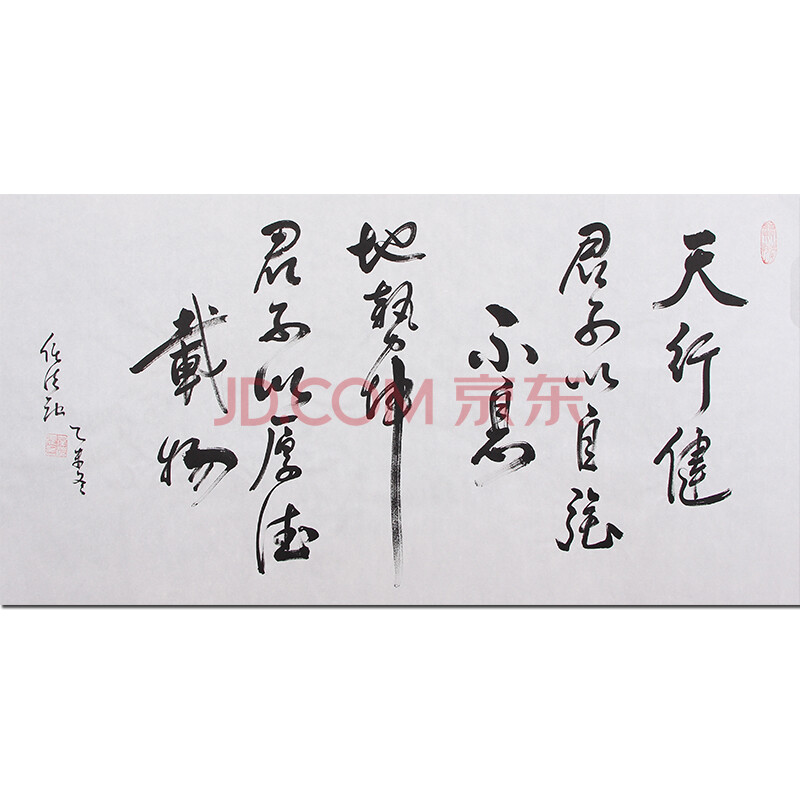 天行健
君子以自強
不息
地勢坤
君子以厚德
載物
乙未冬
JD.COM 京东